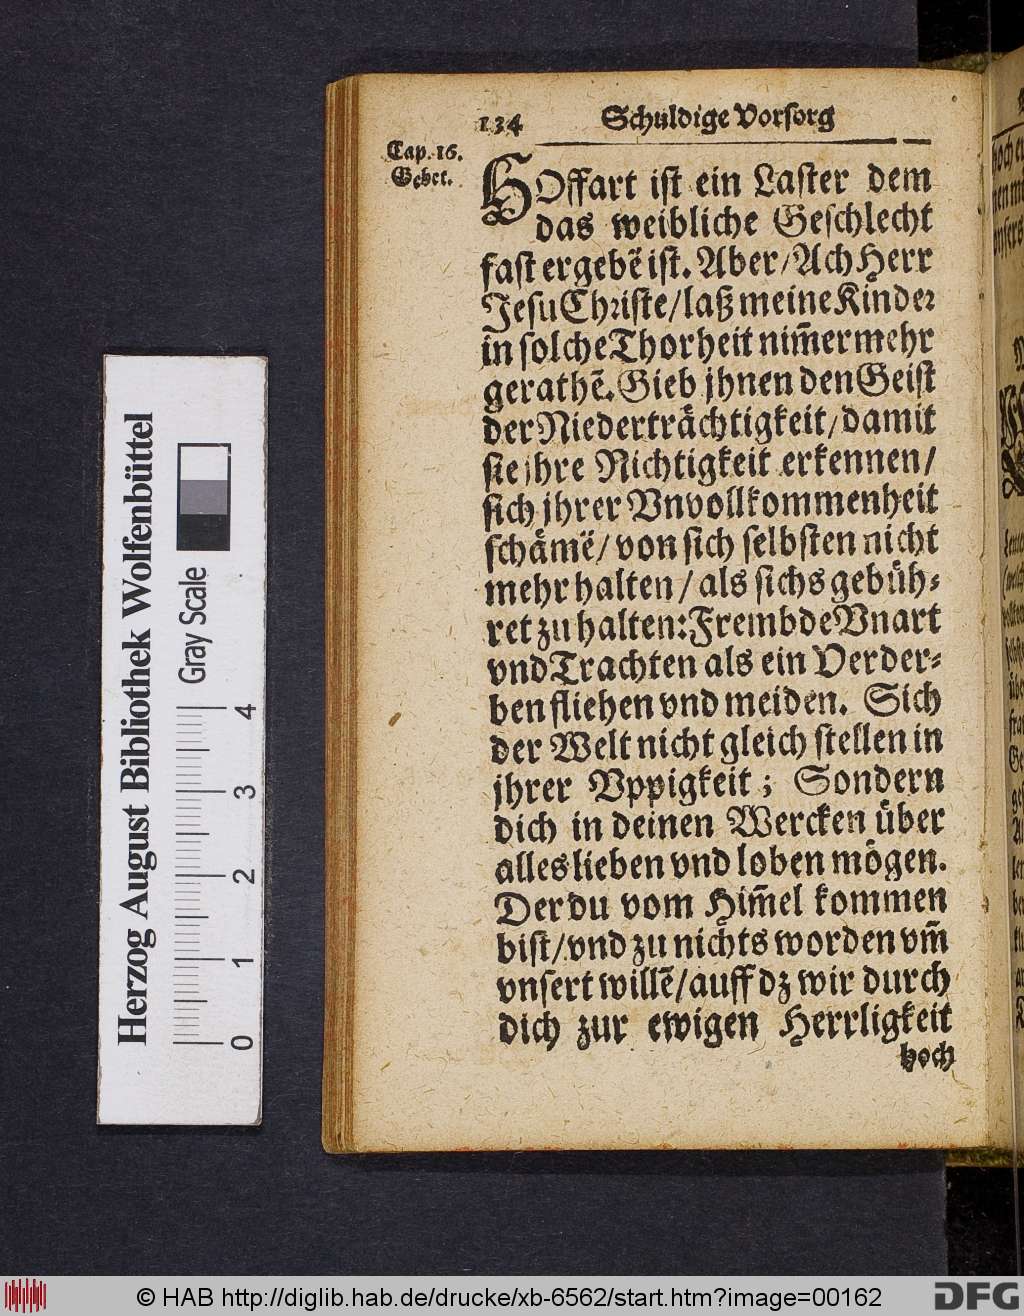 134 Schuldige Vorsorg
Cap. 16.
Gebet.
HOffart ist ein Laster dem
das weibliche Geschlecht
fast ergebẽ ist. Aber/ Ach Herr
Jesu Christe/ laß meine Kinder
in solche Thorheit nim̃ermehr
gerathẽ. Gieb jhnen den Geist
der Niederträchtigkeit/ damit
sie jhre Nichtigkeit erkennen/
sich jhrer Vnvollkommenheit
schämẽ/ von sich selbsten nicht
mehr halten/ als sichs gebüh-
ret zu halten: Frembde Vnart
vnd Trachten als ein Verder-
ben fliehen vnd meiden. Sich
der Welt nicht gleich stellen in
jhrer Vppigkeit; Sondern
dich in deinen Wercken über
alles lieben vnd loben mögen.
Der du vom Him̃el kommen
bist/ vnd zu nichts worden vm̃
vnsert willẽ/ auff dz wir durch
dich zur ewigen Herrligkeit
hoch
Herzog August Bibliothek Wolfenbüttel
Gray Scale
0 1 2 3 4
© HAB http://diglib.hab.de/drucke/xb-6562/start.htm?image=00162
DFG